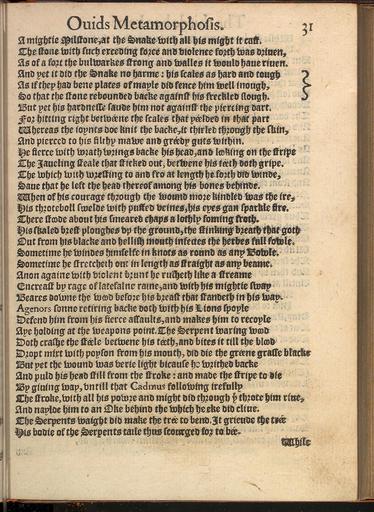 Ouids Metamorphosis.
31
A mightie Milstone, at the Snake with all his might it cast.
The stone with such exceding force and violence forth was driuen,
As of a fort the bulwarkes strong and walles it would haue riuen.
And yet it did the Snake no harme: his scales as hard and tough
As if they had bene plates of mayle did fence him well inough,
So that the stone rebounded backe against his freckled slough.
But yet his hardnesse saude him not against the piercing dart.
For hitting right betweene the scales that yeelded in that part
Whereas the ioynts doe knit the backe, it thirled through the skin,
And pierced to his filthy mawe and greedy guts within.
He fierce with wrath wrings backe his head, and looking on the stripe
The Iaueling steale that sticked out, betwene his teeth doth gripe.
The which with wresting to and fro at length he forth did winde,
Saue that he left the head thereof among his bones behinde.
When of his courage through the wound more kindled was the ire,
His throteboll swelde with puffed veines, his eyes gan sparkle fire.
There stode about his smeared chaps a lothly foming froth.
His skaled brest ploughes vp the ground, the stinking breath that goth
Out from his blacke and hellish mouth infectes the herbes full fowle.
Sometime he windes himselfe in knots as round as any Bowle.
Sometime he stretcheth out in length as straight as any beame.
Anon againe with violent brunt he rusheth like a streame
Encreast by rage of latefalne raine, and with his mightie sway
Beares downe the wood before his breast that standeth in his way.
Agenors sonne retiring backe doth with his Lions spoyle
Defend him from his fierce assaults, and makes him to recoyle
Aye holding at the weapons point. The Serpent waring wood
Doth crashe the steele betwene his teeth, and bites it till the blood
Dropt mixt with poyson from his mouth, did die the greene grasse blacke
But yet the wound was verie light bicause he writhed backe
And puld his head still from the stroke: and made the stripe to die
By giuing way, vntill that Cadmus following irefully
The stroke, with all his powre and might did through ẏ throte him riue,
And naylde him to an Oke behind the which he eke did cliue.
The Serpents waight did make the tree to bend. It grieude the tree
His bodie of the Serpents taile thus scourged for to bee.
While